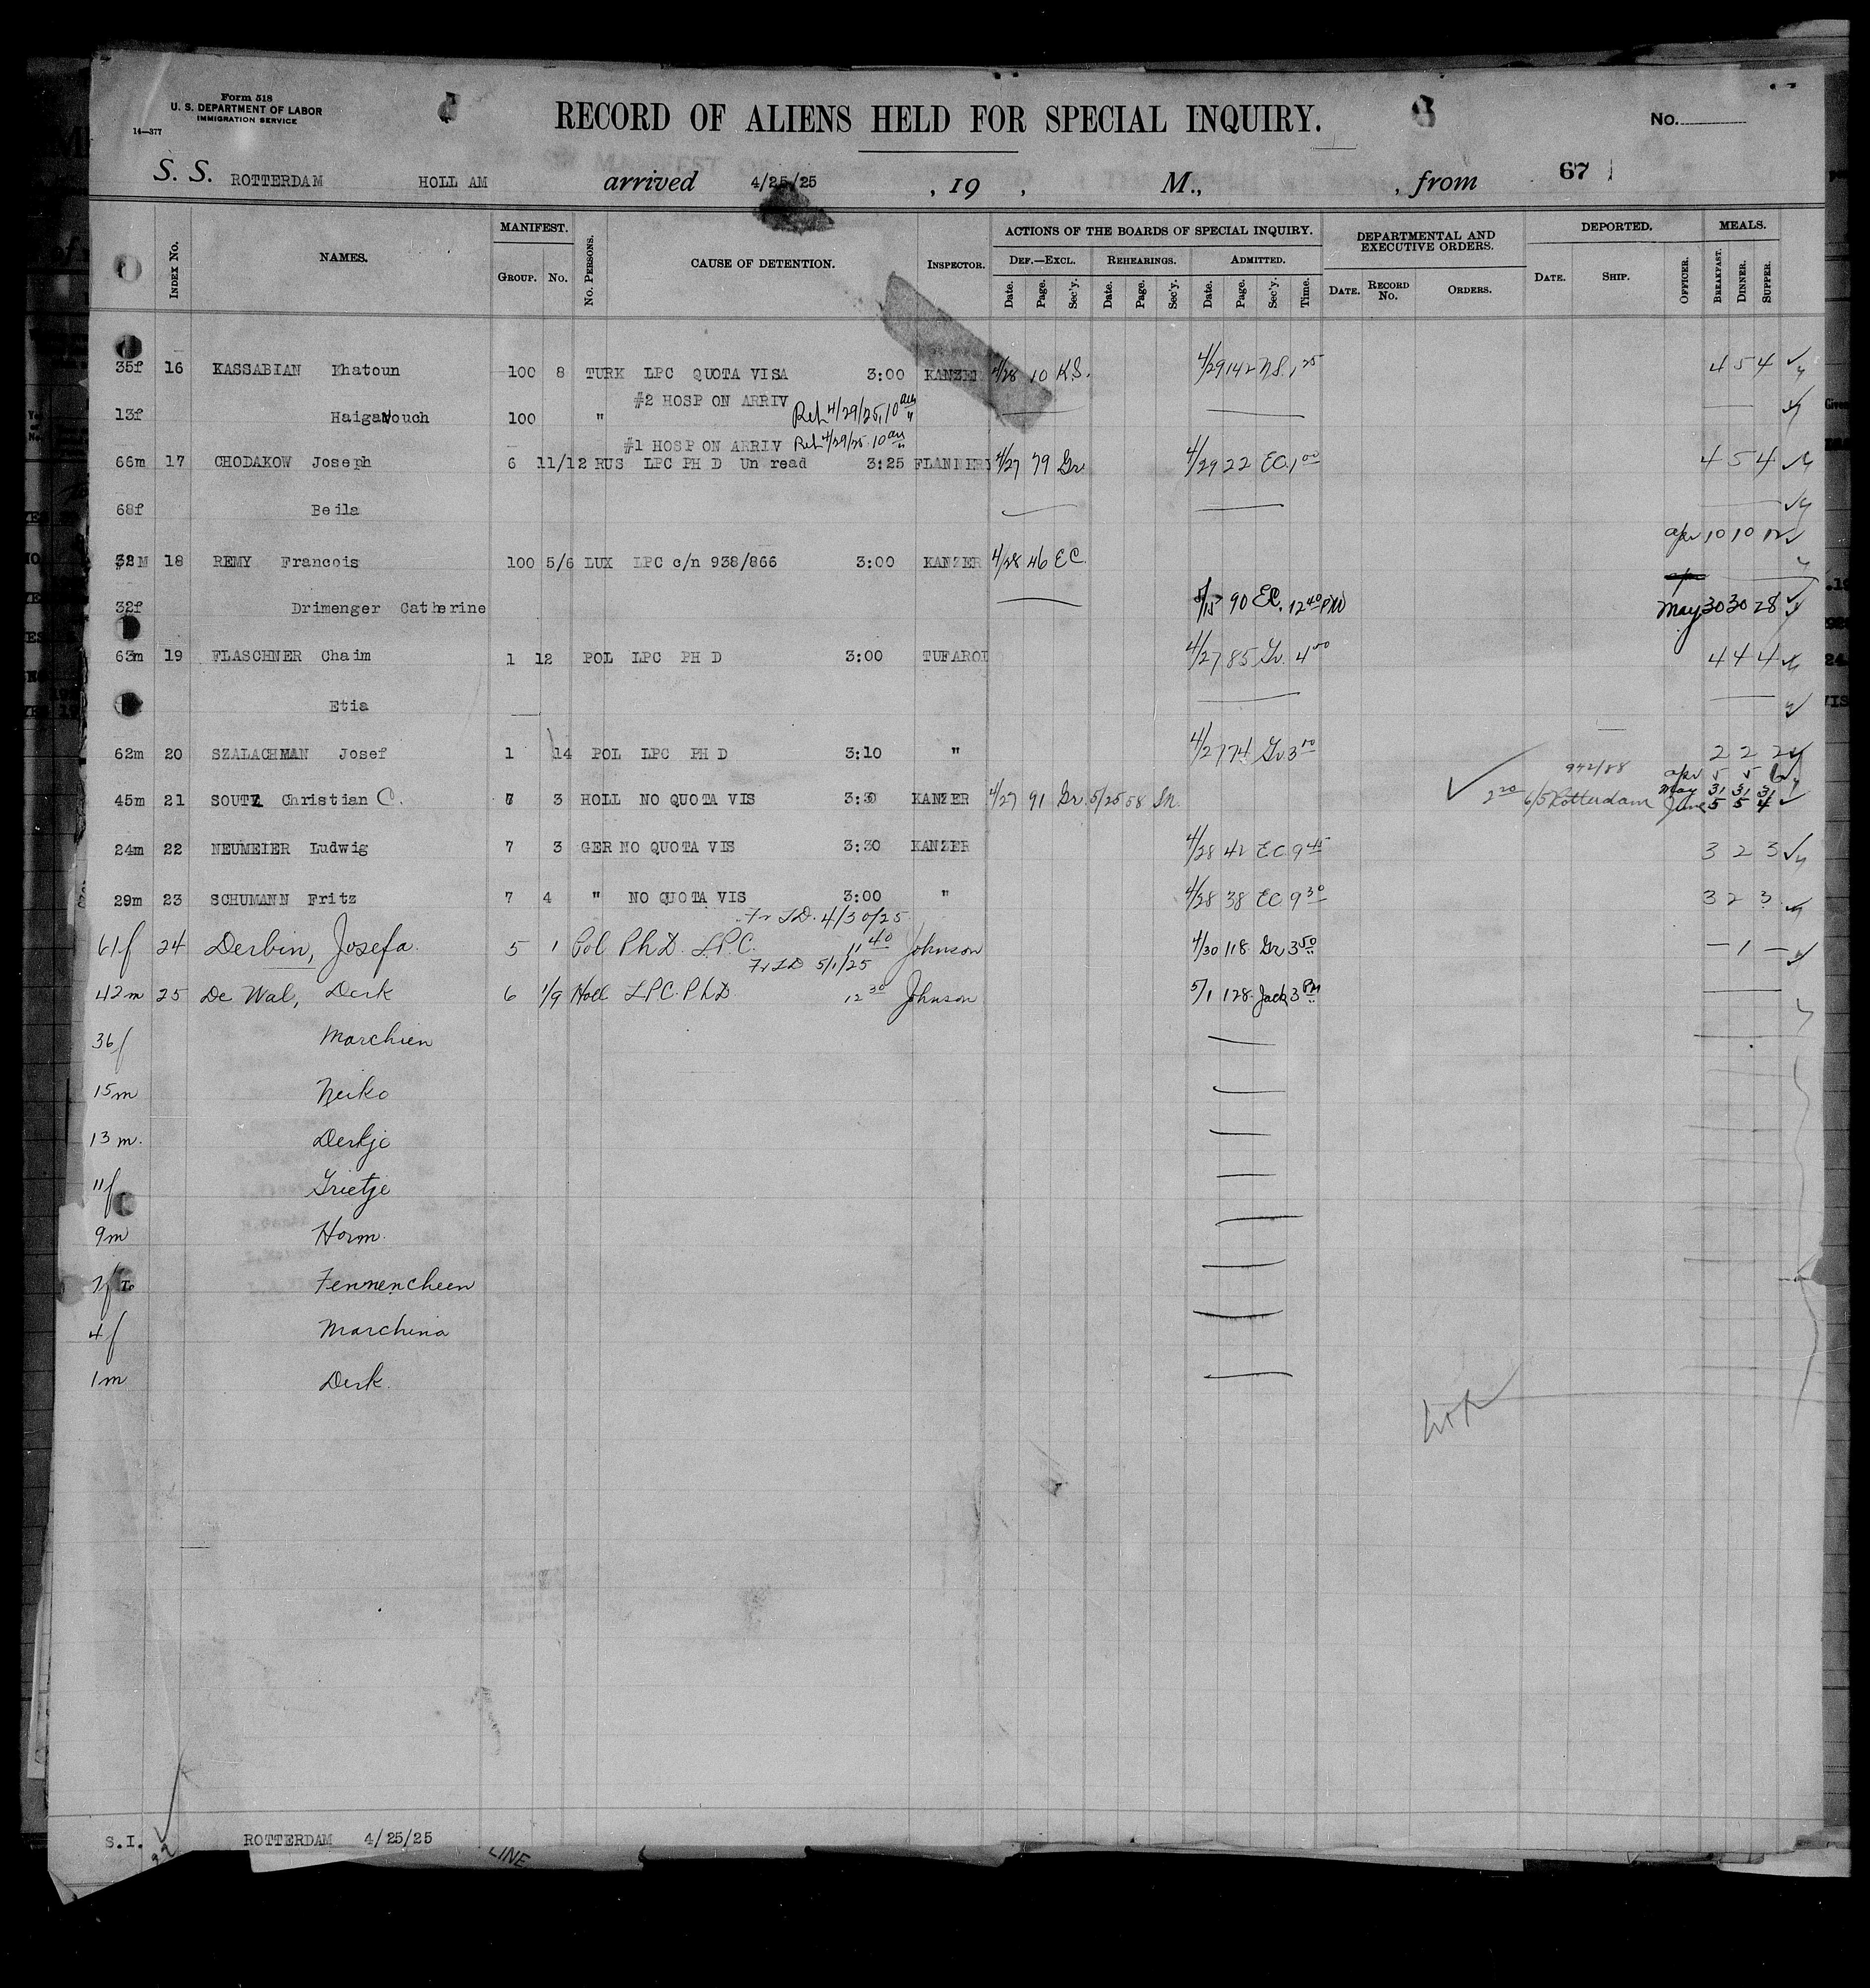 Form 518
U. S. DEPARTMENT OF LABOR
IMMIGRATION SERVICE
14—377
RECORD OF ALIENS HELD FOR SPECIAL INQUIRY.
No.
S. S. ROTTERDAM HOLL AM arrived 4/25/25 , 19 , M., , from 67
INDEX No. NAMES. MANIFEST. GROUP. No. No. PERSONS. CAUSE OF DETENTION. INSPECTOR. ACTIONS OF THE BOARDS OF SPECIAL INQUIRY. DEPARTMENTAL AND EXECUTIVE ORDERS. DEPORTED. MEALS.
DEF.—EXCL. REHEARINGS. ADMITTED.
Date. Page. Sec'y. Date. Page. Sec'y. Date. Page. Sec'y. Time. DATE. RECORD No. ORDERS. DATE. SHIP. OFFICER. BREAKFAST. DINNER. SUPPER.
35f 16 KASSABIAN Khatoun 100 8 TURK LPC QUOTA VISA 3:00 KANZER 4/28 10 K.S. 4/29 142 N.S. 1 25 4 5 4
#2 HOSP ON ARRIV Rel 4/29/25, 10 am
13f Haiganouch 100 "
#1 HOSP ON ARRIV Rel 4/29/25 10 am
66m 17 CHODAKOW Joseph 6 11/12 RUS LPC PH D Un read 3:25 FLANNERY 4/27 79 Gr. 4/29 22 EC. 1 00 4 5 4
68f Beila
apr 10 10 12
32M 18 REMY Francois 100 5/6 LUX LPC c/n 938/866 3:00 KANZER 4/28 46 EC.
32f Drimenger Catherine 5/15 90 EC. 12 40 PM May 30 30 28
63m 19 FLASCHNER Chaim 1 12 POL LPC PH D 3:00 TUFAROL 4/27 85 Gr. 4 00 4 4 4
Etia
62m 20 SZALACHMAN Josef 1 14 POL LPC PH D 3:10 " 4/27 74 Gr 3 10 2 2 2
942/88 apr 5 5 6
May 31 31 31
45m 21 SOUTZ Christian C. 7 3 HOLL NO QUOTA VIS 3:30 KANZER 4/27 91 Gr. 5/25 58 Sn. 2 20 6/5 Rotterdam June 5 5 4
24m 22 NEUMEIER Ludwig 7 3 GER NO QUOTA VIS 3:30 KANZER 4/28 42 EC 9 45 3 2 3
29m 23 SCHUMANN Fritz 7 4 " NO QUOTA VIS 3:00 " 4/28 38 EC 9 30 3 2 3
Fr T.D. 4/30/25
61f 24 Derbin, Josefa. 5 1 Pol PhD. LPC. 11 40 Johnson 4/30 118 Gr 3 50 — 1 —
Fr T D 5/1/25
42m 25 De Wal, Derk 6 1/9 Holl LPC. PhD 12 30 Johnson 5/1 128 Jack 3 PM
36f Marchien
15m Neiko
13 m. Derkje
11f Grietje
9m Harm.
7f Fennencheen
4f Marchina
1m Derk.
S.I. ROTTERDAM 4/25/25
LINE